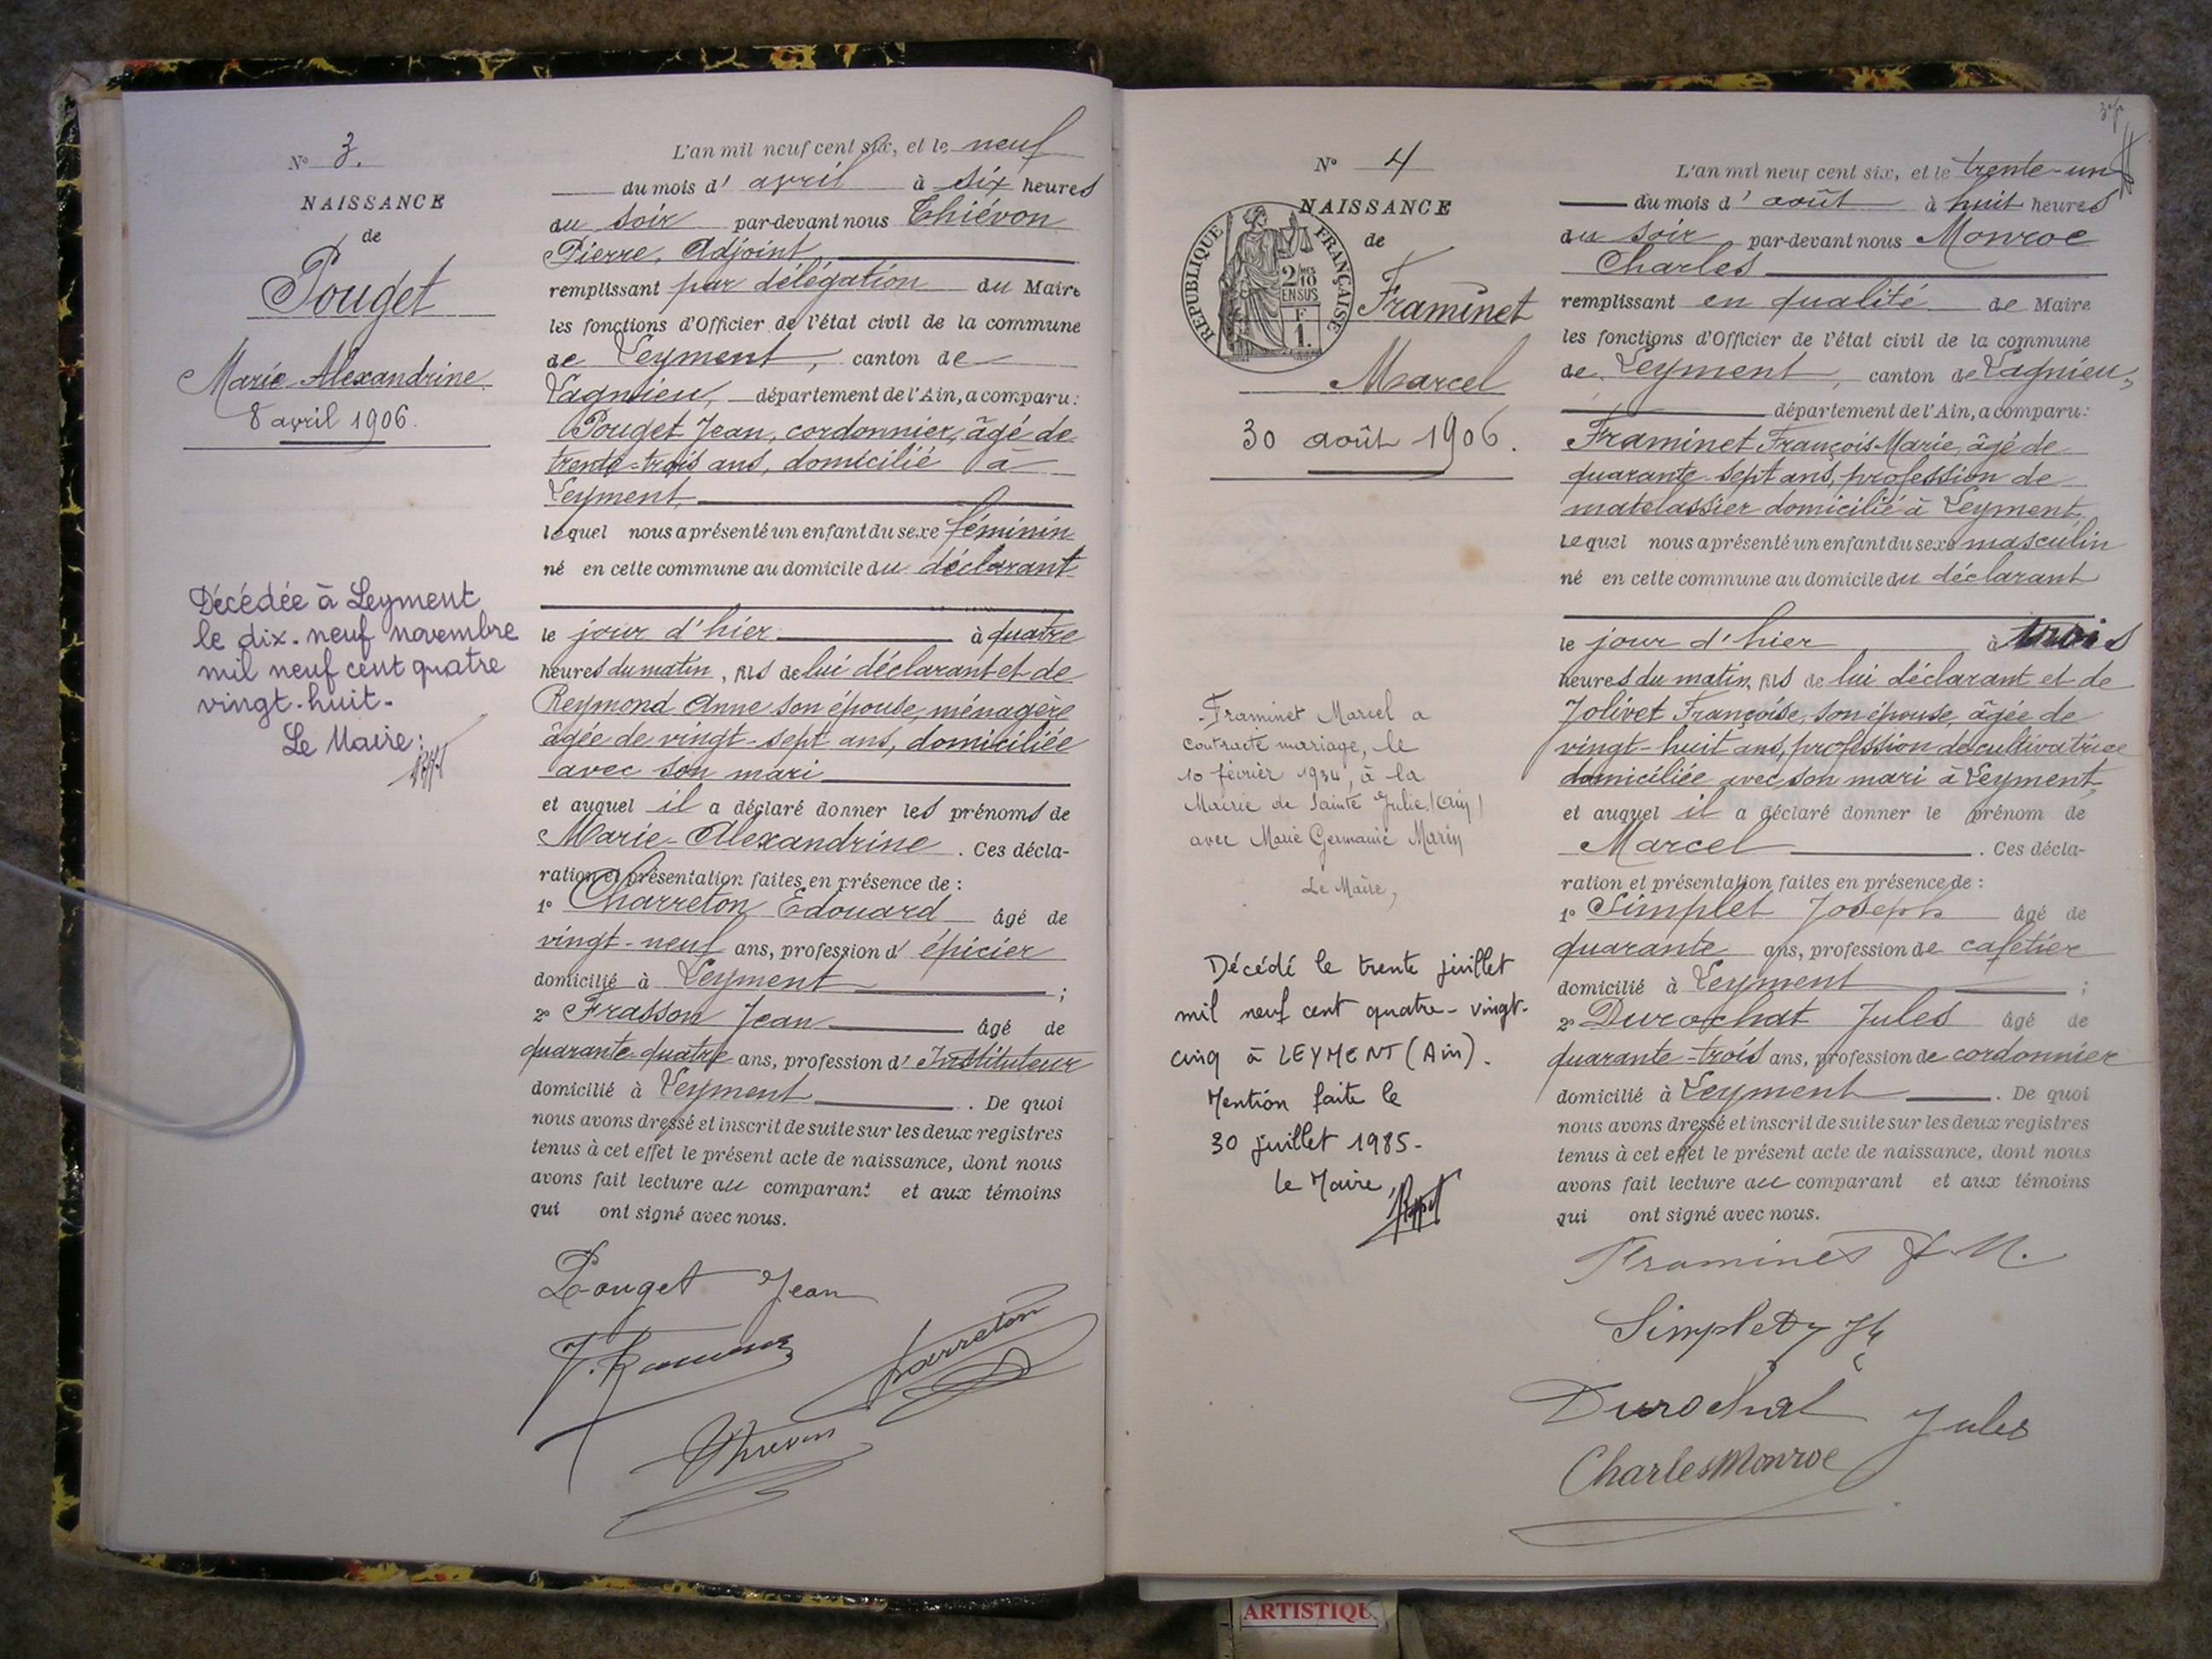 N° 3.
NAISSANCE
de
Pouget
Marie-Alexandrine
8 avril 1906.
Décédée à Leyment
le dix-neuf novembre
mil neuf cent quatre
vingt-huit-
Le Maire:
L'an mil neuf cent six, et le neuf
du mois d'avril à six heures
du soir par-devant nous Thiévon
Pierre, Adjoint
remplissant par délégation du Maire
les fonctions d'Officier de l'état civil de la commune
de Leyment, canton de
Lagnieu, département de l'Ain, a comparu:
Pouget Jean, cordonnier, âgé de
trente-trois ans, domicilié à
Leyment,
lequel nous a présenté un enfant du sexe féminin
né en cette commune au domicile du déclarant
le jour d'hier à quatre
heures du matin, fils de lui déclarant et de
Reymond Anne son épouse, ménagère
âgée de vingt-sept ans, domiciliée
avec son mari
et auquel il a déclaré donner les prénoms de
Marie-Alexandrine. Ces décla-
ration et présentation faites en présence de:
1° Charreton Edouard âgé de
vingt-neuf ans, profession d'épicier
domicilié à Leyment;
2° Frasson Jean âgé de
quarante-quatre ans, profession d'Instituteur
domicilié à Leyment. De quoi
nous avons dressé et inscrit de suite sur les deux registres
tenus à cet effet le présent acte de naissance, dont nous
avons fait lecture au comparant et aux témoins
qui ont signé avec nous.
Pouget Jean
Charreton
Thievon
N° 4
NAISSANCE
de
RÉPUBLIQUE FRANÇAISE
2/10 MES
EN SUS
F
1.
Framinet
Marcel
30 août 1906.
Framinet Marcel a
contracté mariage, le
10 février 1934, à la
Mairie de Sainte Julie (Ain)
avec Marie Germanie Marin
Le Maire,
Décédé le trente juillet
mil neuf cent quatre-vingt-
cinq à LEYMENT (Ain).
Mention faite le
30 juillet 1985-
le Maire,
L'an mil neuf cent six, et le trente-un
du mois d'août à huit heures
du soir par-devant nous Monroe
Charles
remplissant en qualité de Maire
les fonctions d'Officier de l'état civil de la commune
de Leyment, canton de Lagnieu,
département de l'Ain, a comparu:
Framinet François-Marie, âgé de
quarante-sept ans, profession de
matelassier domicilié à Leyment,
lequel nous a présenté un enfant du sexe masculin
né en cette commune au domicile du déclarant
le jour d'hier à trois
heures du matin, fils de lui déclarant et de
Jolivet Françoise, son épouse, âgée de
vingt-huit ans, profession de cultivatrice
domiciliée avec son mari à Leyment,
et auquel il a déclaré donner le prénom de
Marcel. Ces décla-
ration et présentation faites en présence de:
1° Simplet Joseph âgé de
quarante ans, profession de cafetier
domicilié à Leyment;
2° Durochat Jules âgé de
quarante-trois ans, profession de cordonnier
domicilié à Leyment. De quoi
nous avons dressé et inscrit de suite sur les deux registres
tenus à cet effet le présent acte de naissance, dont nous
avons fait lecture au comparant et aux témoins
qui ont signé avec nous.
Framinet F. M.
Simplet Jh
Durochat Jules
Charles Monroe
ARTISTIQU